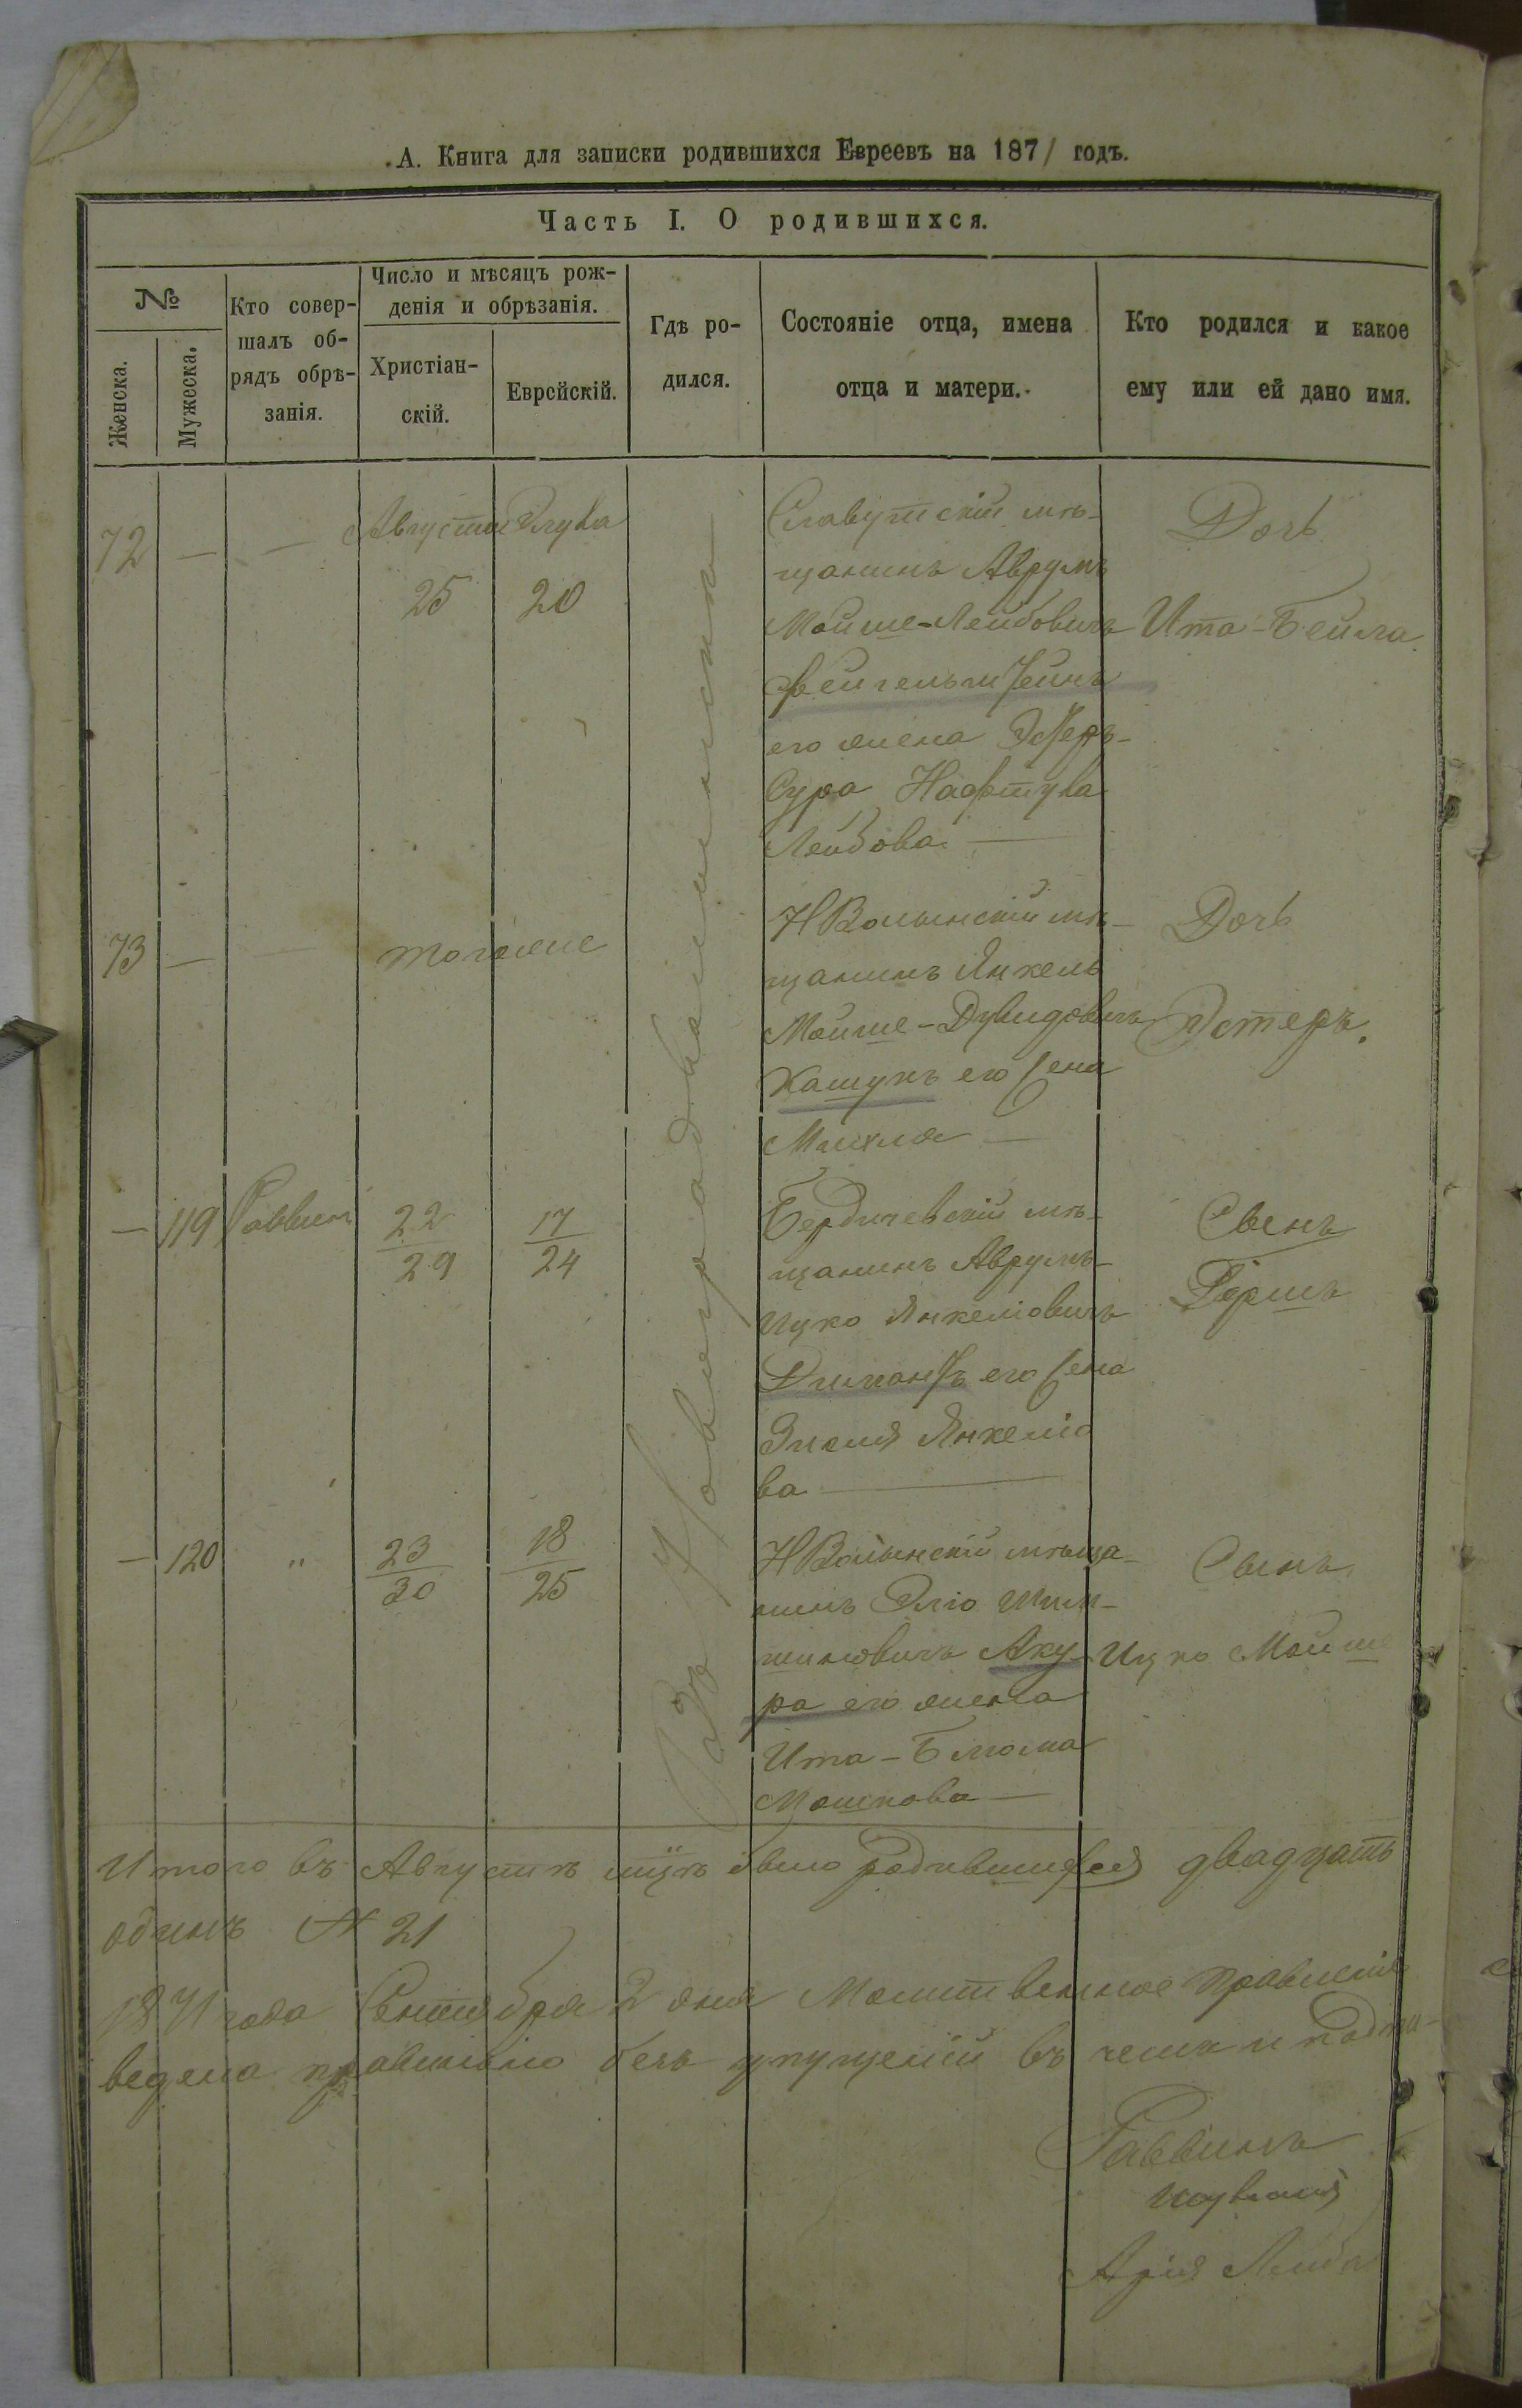 А. Книга для записки родившихся Евреевъ на 1871 годъ.
Часть I. О родившихся.
№
Женска.
Мужеска.
Кто совер-
шалъ об-
рядъ обрѣ-
занія.
Число и мѣсяцъ рож-
денія и обрѣзанія.
Христіан-
скій.
Еврейскій.
Гдѣ ро-
дился.
Состояніе отца, имена
отца и матери.
Кто родился и какое
ему или ей дано имя.
72 — — Августа Элула
25 20
Славутскій мѣ-
щанинъ Аврумъ
Мойше-Лейбовичъ
Фейгельштейнъ
его жена Эстеръ-
Сура Нафтула
Лейбова —
Дочь
Ита-Бейла
73 — — тогоже
НВолынскій мѣ-
щанинъ Янкель
Мойше-Дувидовичъ
Кашукъ его жена
—
Дочь
Эстеръ.
— 119 Раввинъ 22/29 17/24
Бердичевскій мѣ-
щанинъ Аврумъ-
Ицко Янкеліовичъ
его жена
Янкеліо
ва —
Сынъ
Гершъ
— 120 " 23/30 18/25
НВолынскій мѣща-
нинъ Эліо
Аку-
ра его жена
Ита-Блюма
Мошкова —
Сынъ
Ицко Мойше
Въ Новоградволынскѣ
Итого въ Августѣ мцѣ было родившихся двадцать
одинъ № 21
1871 года Сентября 2 дня Молитвенное Правленіе
ведена правильно безъ упущеній въ чемъ и подпи-
Раввинъ
Арія Лейба